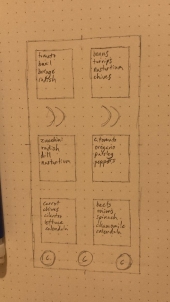 basil
borage
radish
beans
turnips
nasturtium
chives
zucchini
radish
dill
nasturtium
tomato
oregano
parsley
peppers
carrot
chives
cilantro
lettuce
calendula
beets
onions
spinach
chamomile
calendula
C
C
C